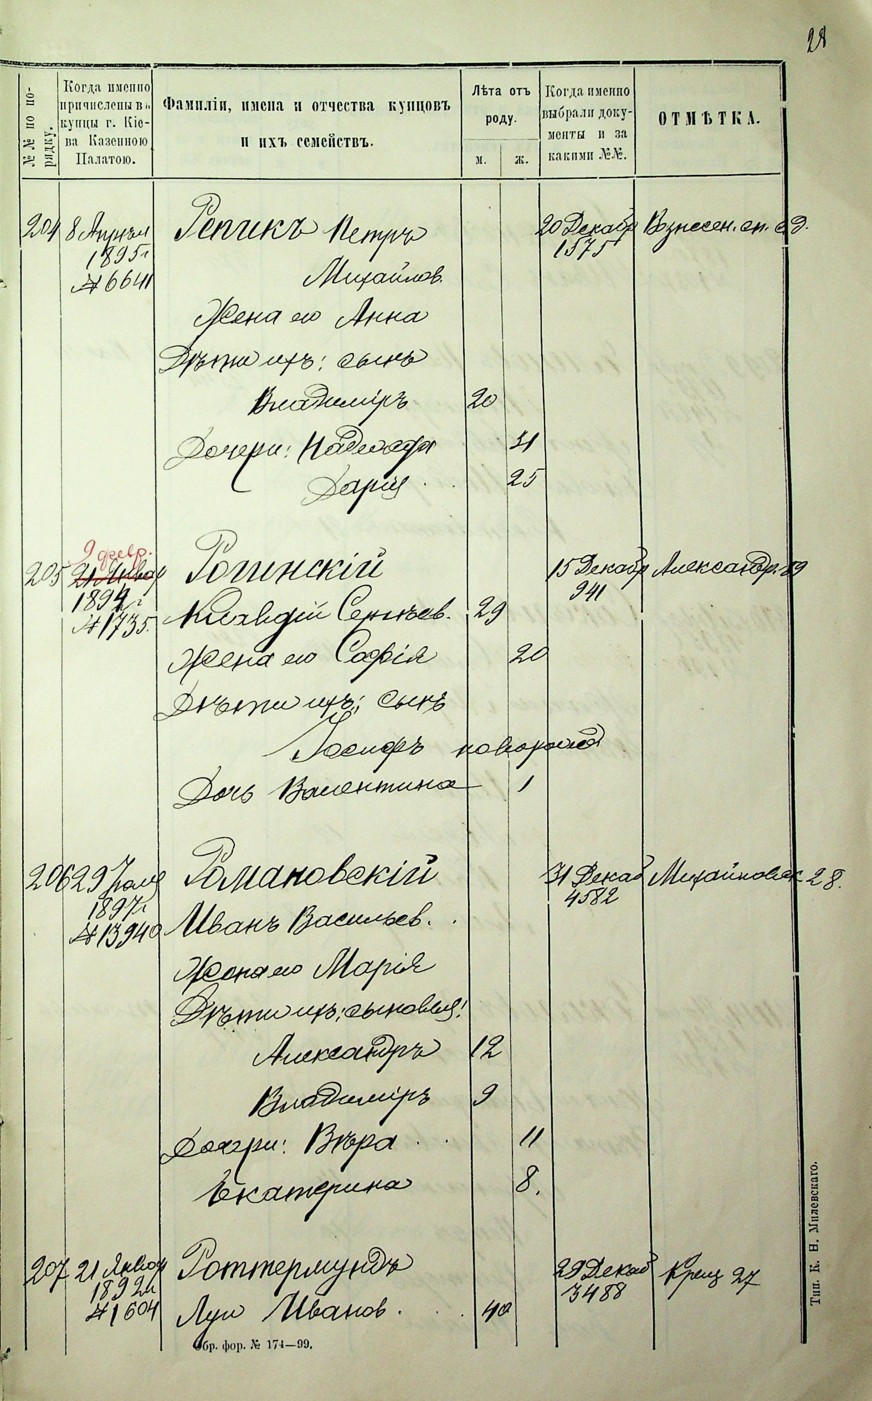 28
№№ по по-
рядку.
Когда именно
причислены въ
купцы г. Кіе-
ва Казенною
Палатою.
Фамиліи, имена и отчества купцовъ
и ихъ семействъ.
Лѣта отъ
роду.
м.
ж.
Когда именно
выбрали доку-
менты и за
какими №№.
ОТМѢТКА.
204 8 Апрѣля Репикъ Петръ 20 Декабр Вознесен. сп. с д.
1895 г 1575
№ 6641 Михайлов.
Жена его Анна
Дѣти ихъ: сынъ
Владиміръ 20
Дочери: Надежда 31
Дарія 25
9 февр.
205 21 Январ Рогинскій 15 Декабр Александр. 89
1894 г 941
№ 1735. Клавдій Сергѣев. 29
Жена его Софія 20
Дѣти ихъ: сынъ
Іосифъ новорожд
Дочь Валентина 1
206 29 Іюля Романовскій 31 Декаб Михайловск 28.
1897 г 4582
№ 13940 Иванъ Васильев.
Жена его Марія
Дѣти ихъ: сыновья:
Александръ 12
Владиміръ 9
Дочери: Вѣра 11
Екатерина 8.
207 21 Январ Роттермундъ 29 Декаб Крещ 27
1892 г 3488
№ 1604 Луи Иванов. 40
Обр. фор. № 174—99.
Тип. К. Н. Милевскаго.